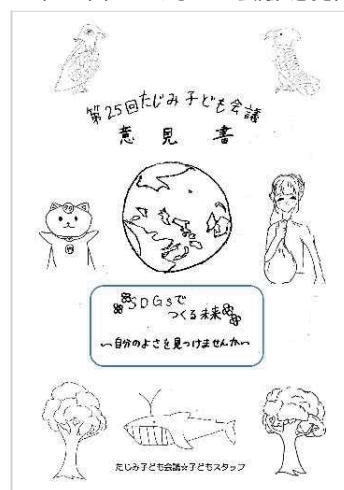 第25回たじみ子ども会議
意見書
SDGsで
つくる未来
～自分のよさを見つけませんか～
たじみ子ども会議☆子どもスタッフ